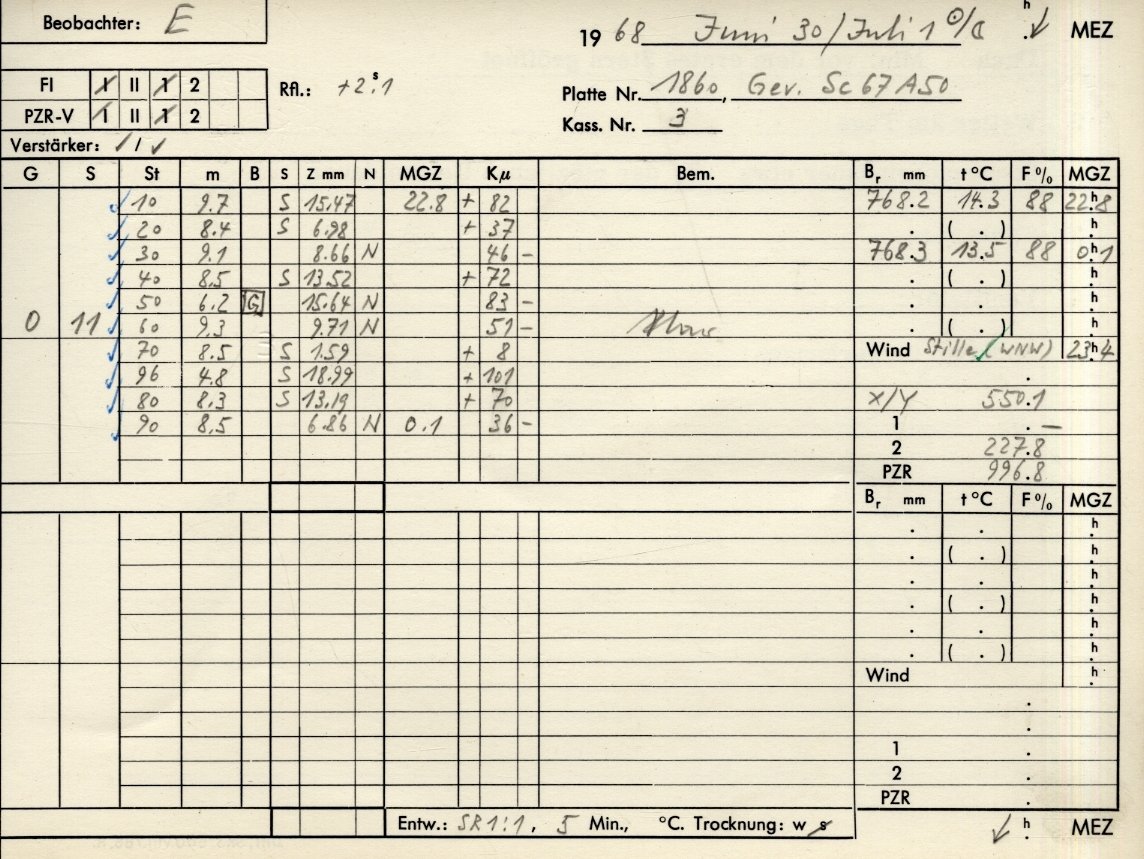 Beobachter: E
1968 Juni 30/Juli 1 ⊙/☾ . h MEZ
FI I II 1 2
PZR-V I II 1 2
Rfl.: +2.ˢ1
Platte Nr. 1860, Gev. Sc67A50
Kass. Nr. 3
Verstärker: ✓/✓
G S St m B S Z mm N MGZ Kμ Bem. Br mm t°C F% MGZ
10 9.7 S 15.47 22.8 + 82 768.2 14.3 88 22.h8
20 8.4 S 6.98 + 37 . ( . ) . h
30 9.1 8.66 N 46 − 768.3 13.5 88 0.h1
40 8.5 S 13.52 + 72 . ( . ) . h
50 6.2 G 15.64 N 83 − . . . h
0 11 60 9.3 9.71 N 51 − . ( . ) . h
70 8.5 S 1.59 + 8 Wind Stille (WNW) 23.h4
96 4.8 S 18.99 + 101 .
80 8.3 S 13.19 + 70 X/Y 550.1
90 8.5 6.86 N 0.1 36 − 1 . —
2 227.8
PZR 996.8
Br mm t°C F% MGZ
. . . h
. ( . ) . h
. . . h
. ( . ) . h
. . . h
. ( . ) . h
Wind . h
.
.
1 .
2 .
PZR .
Entw.: SR1:1, 5 Min., °C. Trocknung: w s
. h MEZ